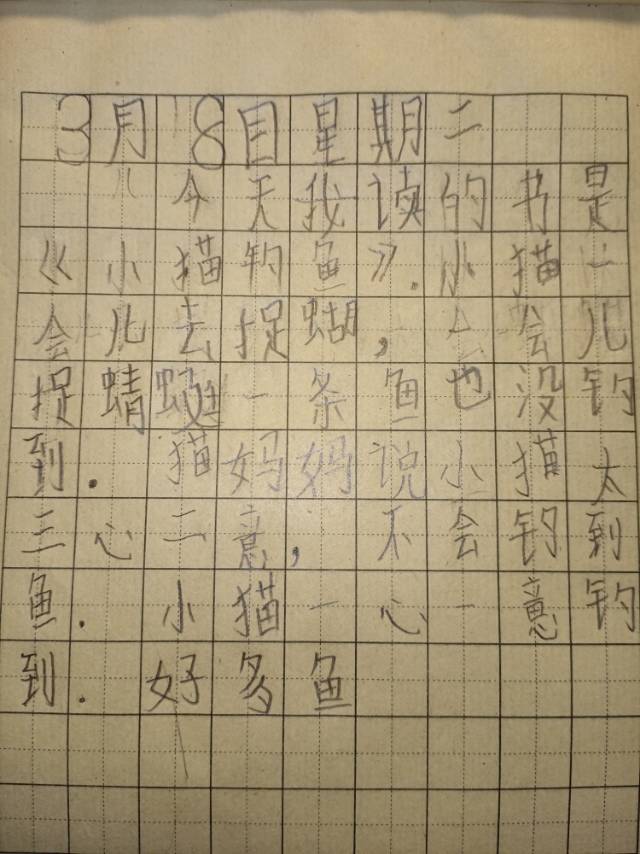 3月18目星期二
今天我读的书是
《小猫钓鱼》.小猫一
会儿去捉蝴,一会儿
捉蜻蜓一条鱼也没钓
到.猫妈妈说小猫太
三心二意,不会钓到
鱼.小猫一心一意钓
到.好多鱼